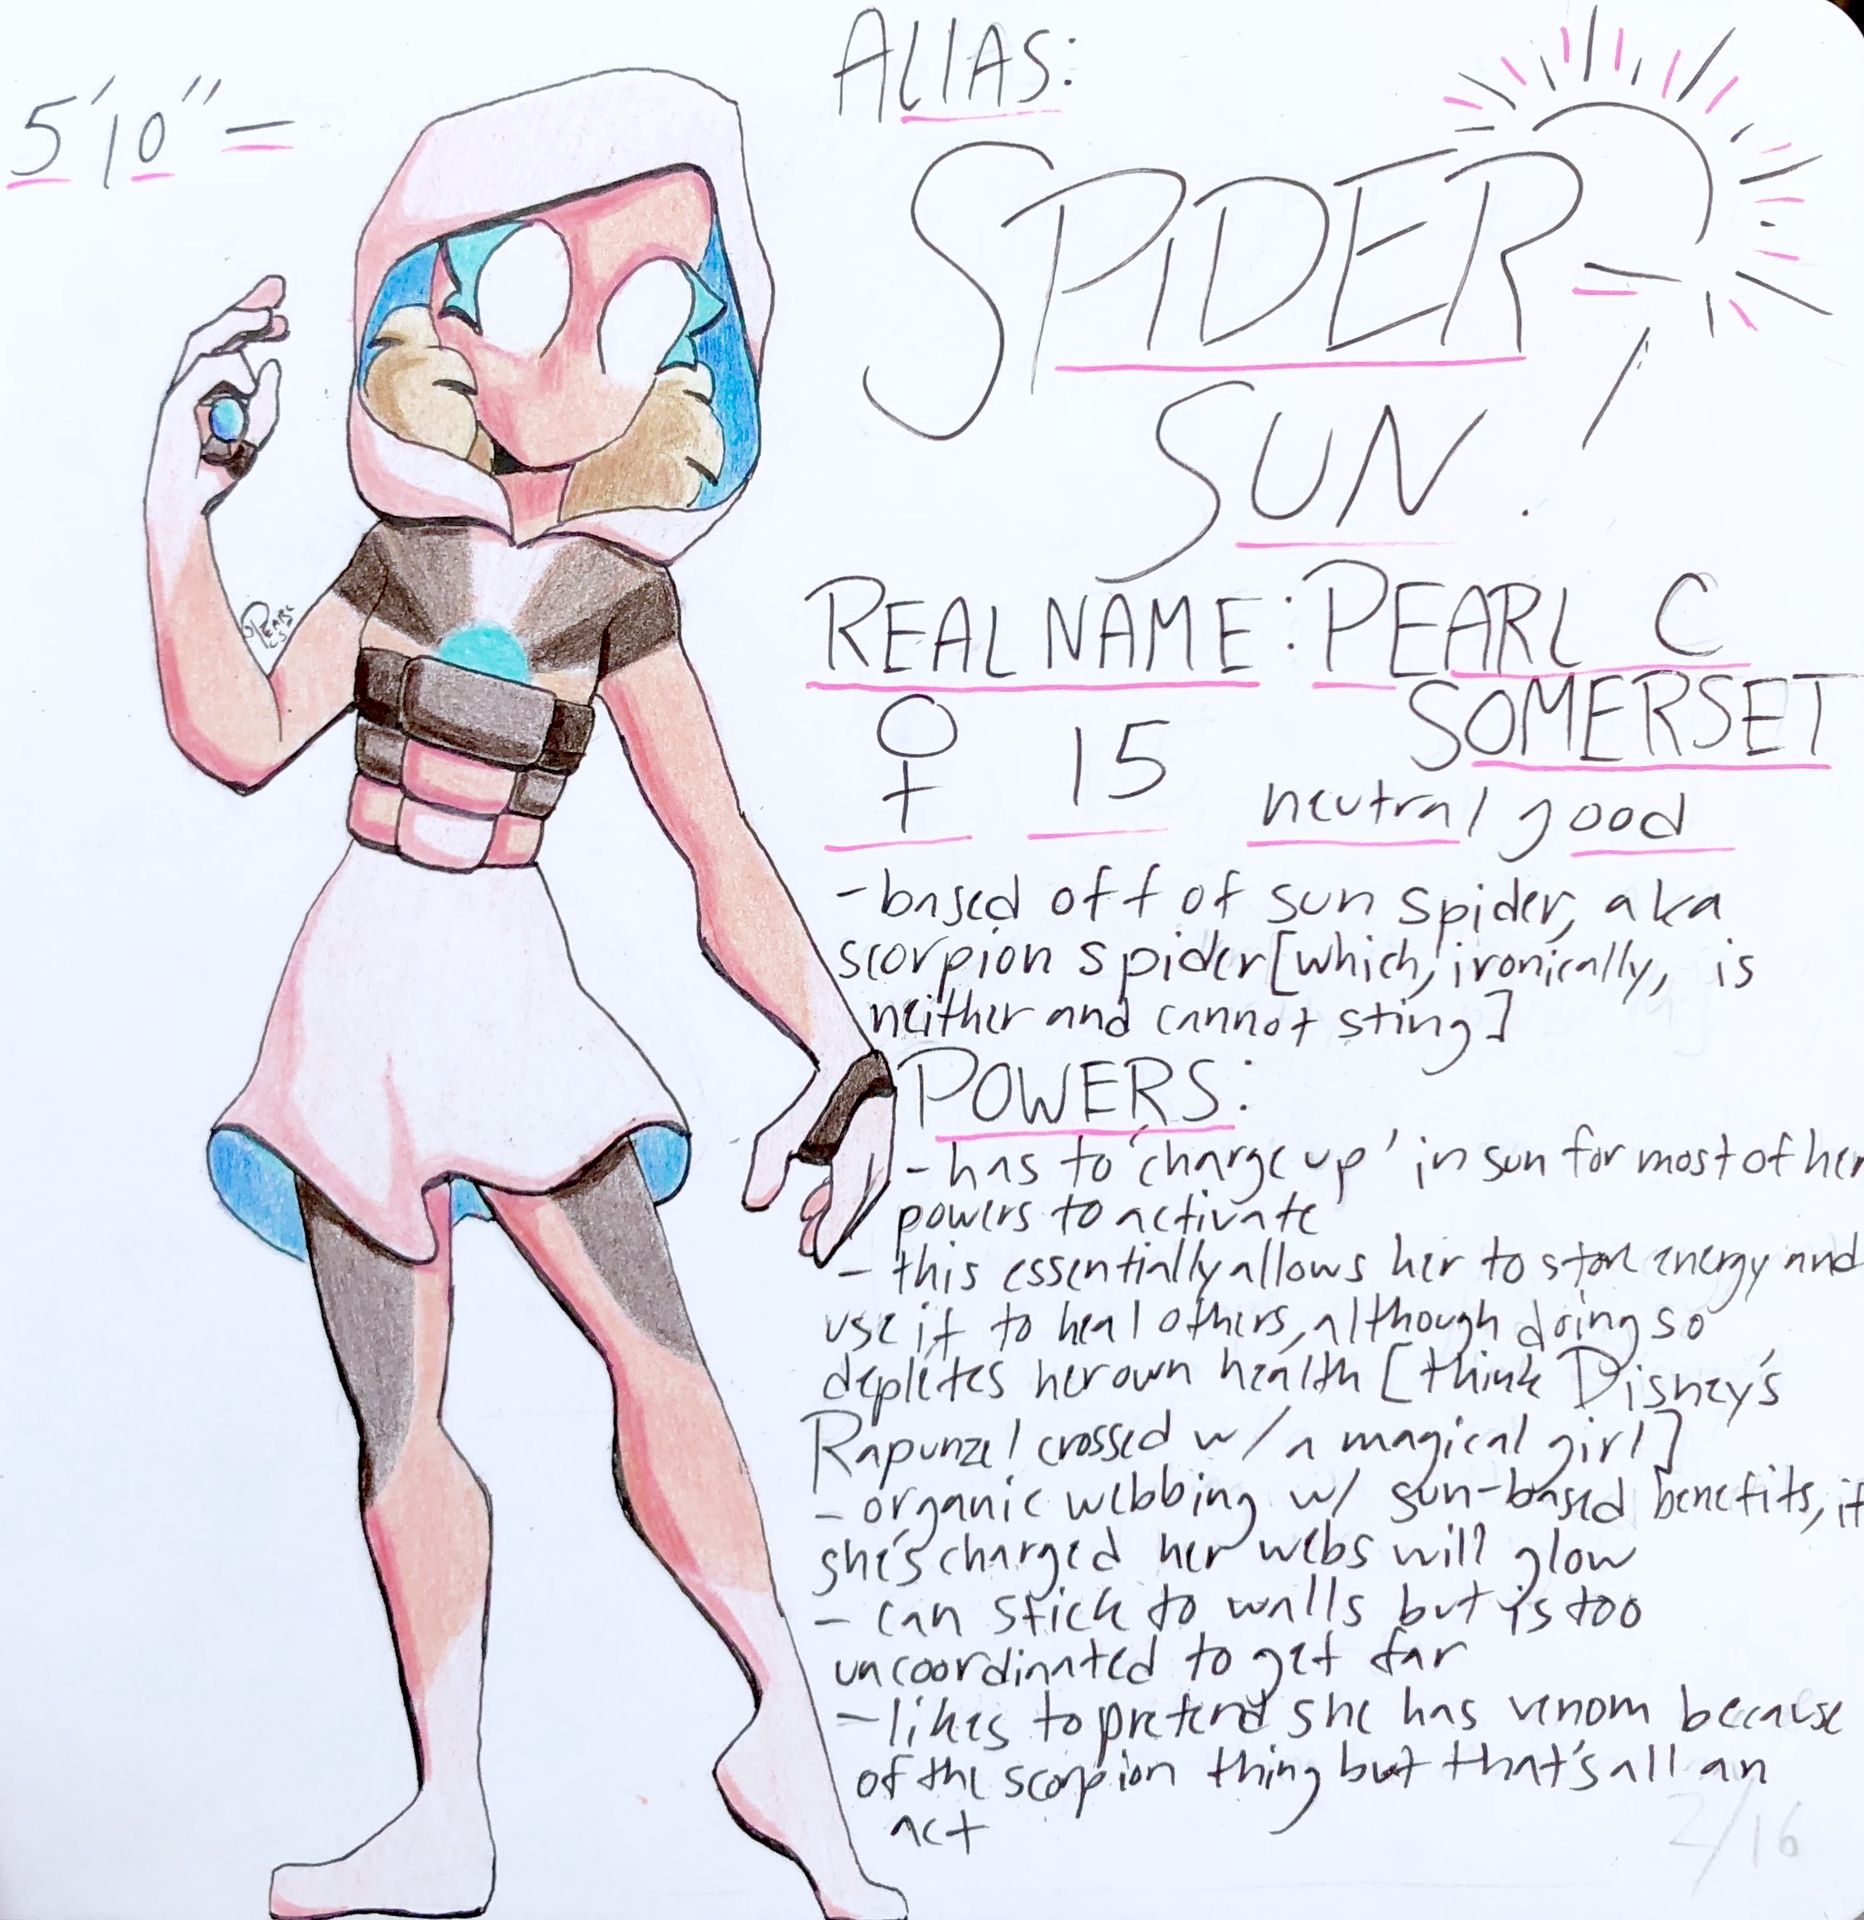 5'10" =
ALIAS:
SPIDER-
SUN!
REAL NAME: PEARL C
SOMERSET
♀ 15 neutral good
- based off of sun spider, aka
scorpion spider [which, ironically, is
neither and cannot sting]
POWERS:
- has to 'charge up' in sun for most of her
powers to activate
- this essentially allows her to store energy and
use it to heal others, although doing so
depletes her own health [think Disney's
Rapunzel crossed w/ a magical girl]
- organic webbing w/ sun-based benefits, if
she's charged her webs will glow
- can stick to walls but is too
uncoordinated to get far
- likes to pretend she has venom because
of the scorpion thing but that's all an
act
2/16